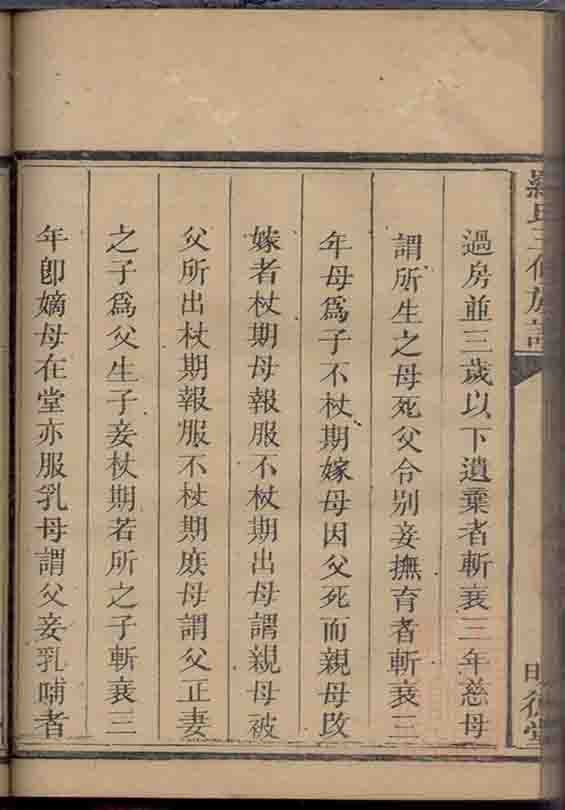 羅氏三修族譜
明德堂
過房並三歲以下遺棄者斬衰三年慈母
謂所生之母死父令别妾撫育者斬衰三
年母爲子不杖期嫁母因父死而親母改
嫁者杖期母報服不杖期出母謂親母被
父所出杖期報服不杖期庶母謂父正妻
之子爲父生子妾杖期若所之子斬衰三
年卽嫡母在堂亦服乳母謂父妾乳哺者